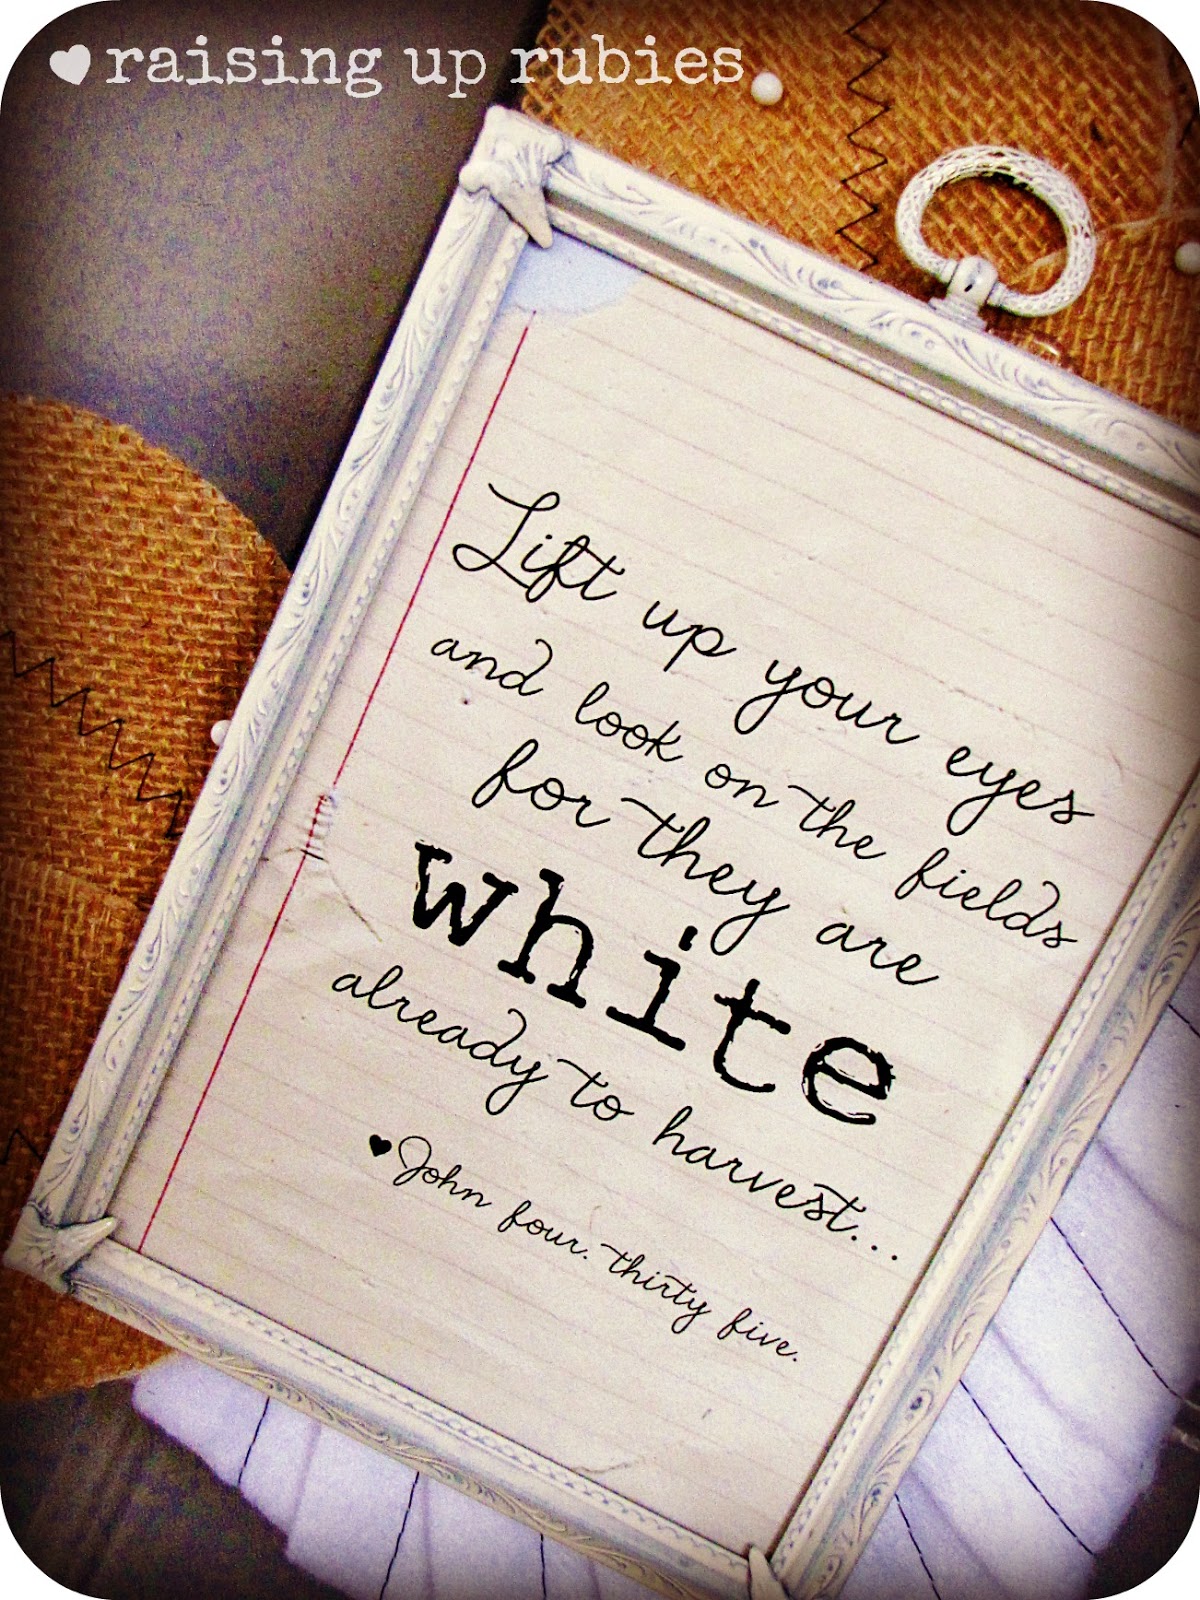 ♥ raising up rubies
Lift up your eyes
and look on the fields
for they are
white
already to harvest...
♥ John four. thirty five.